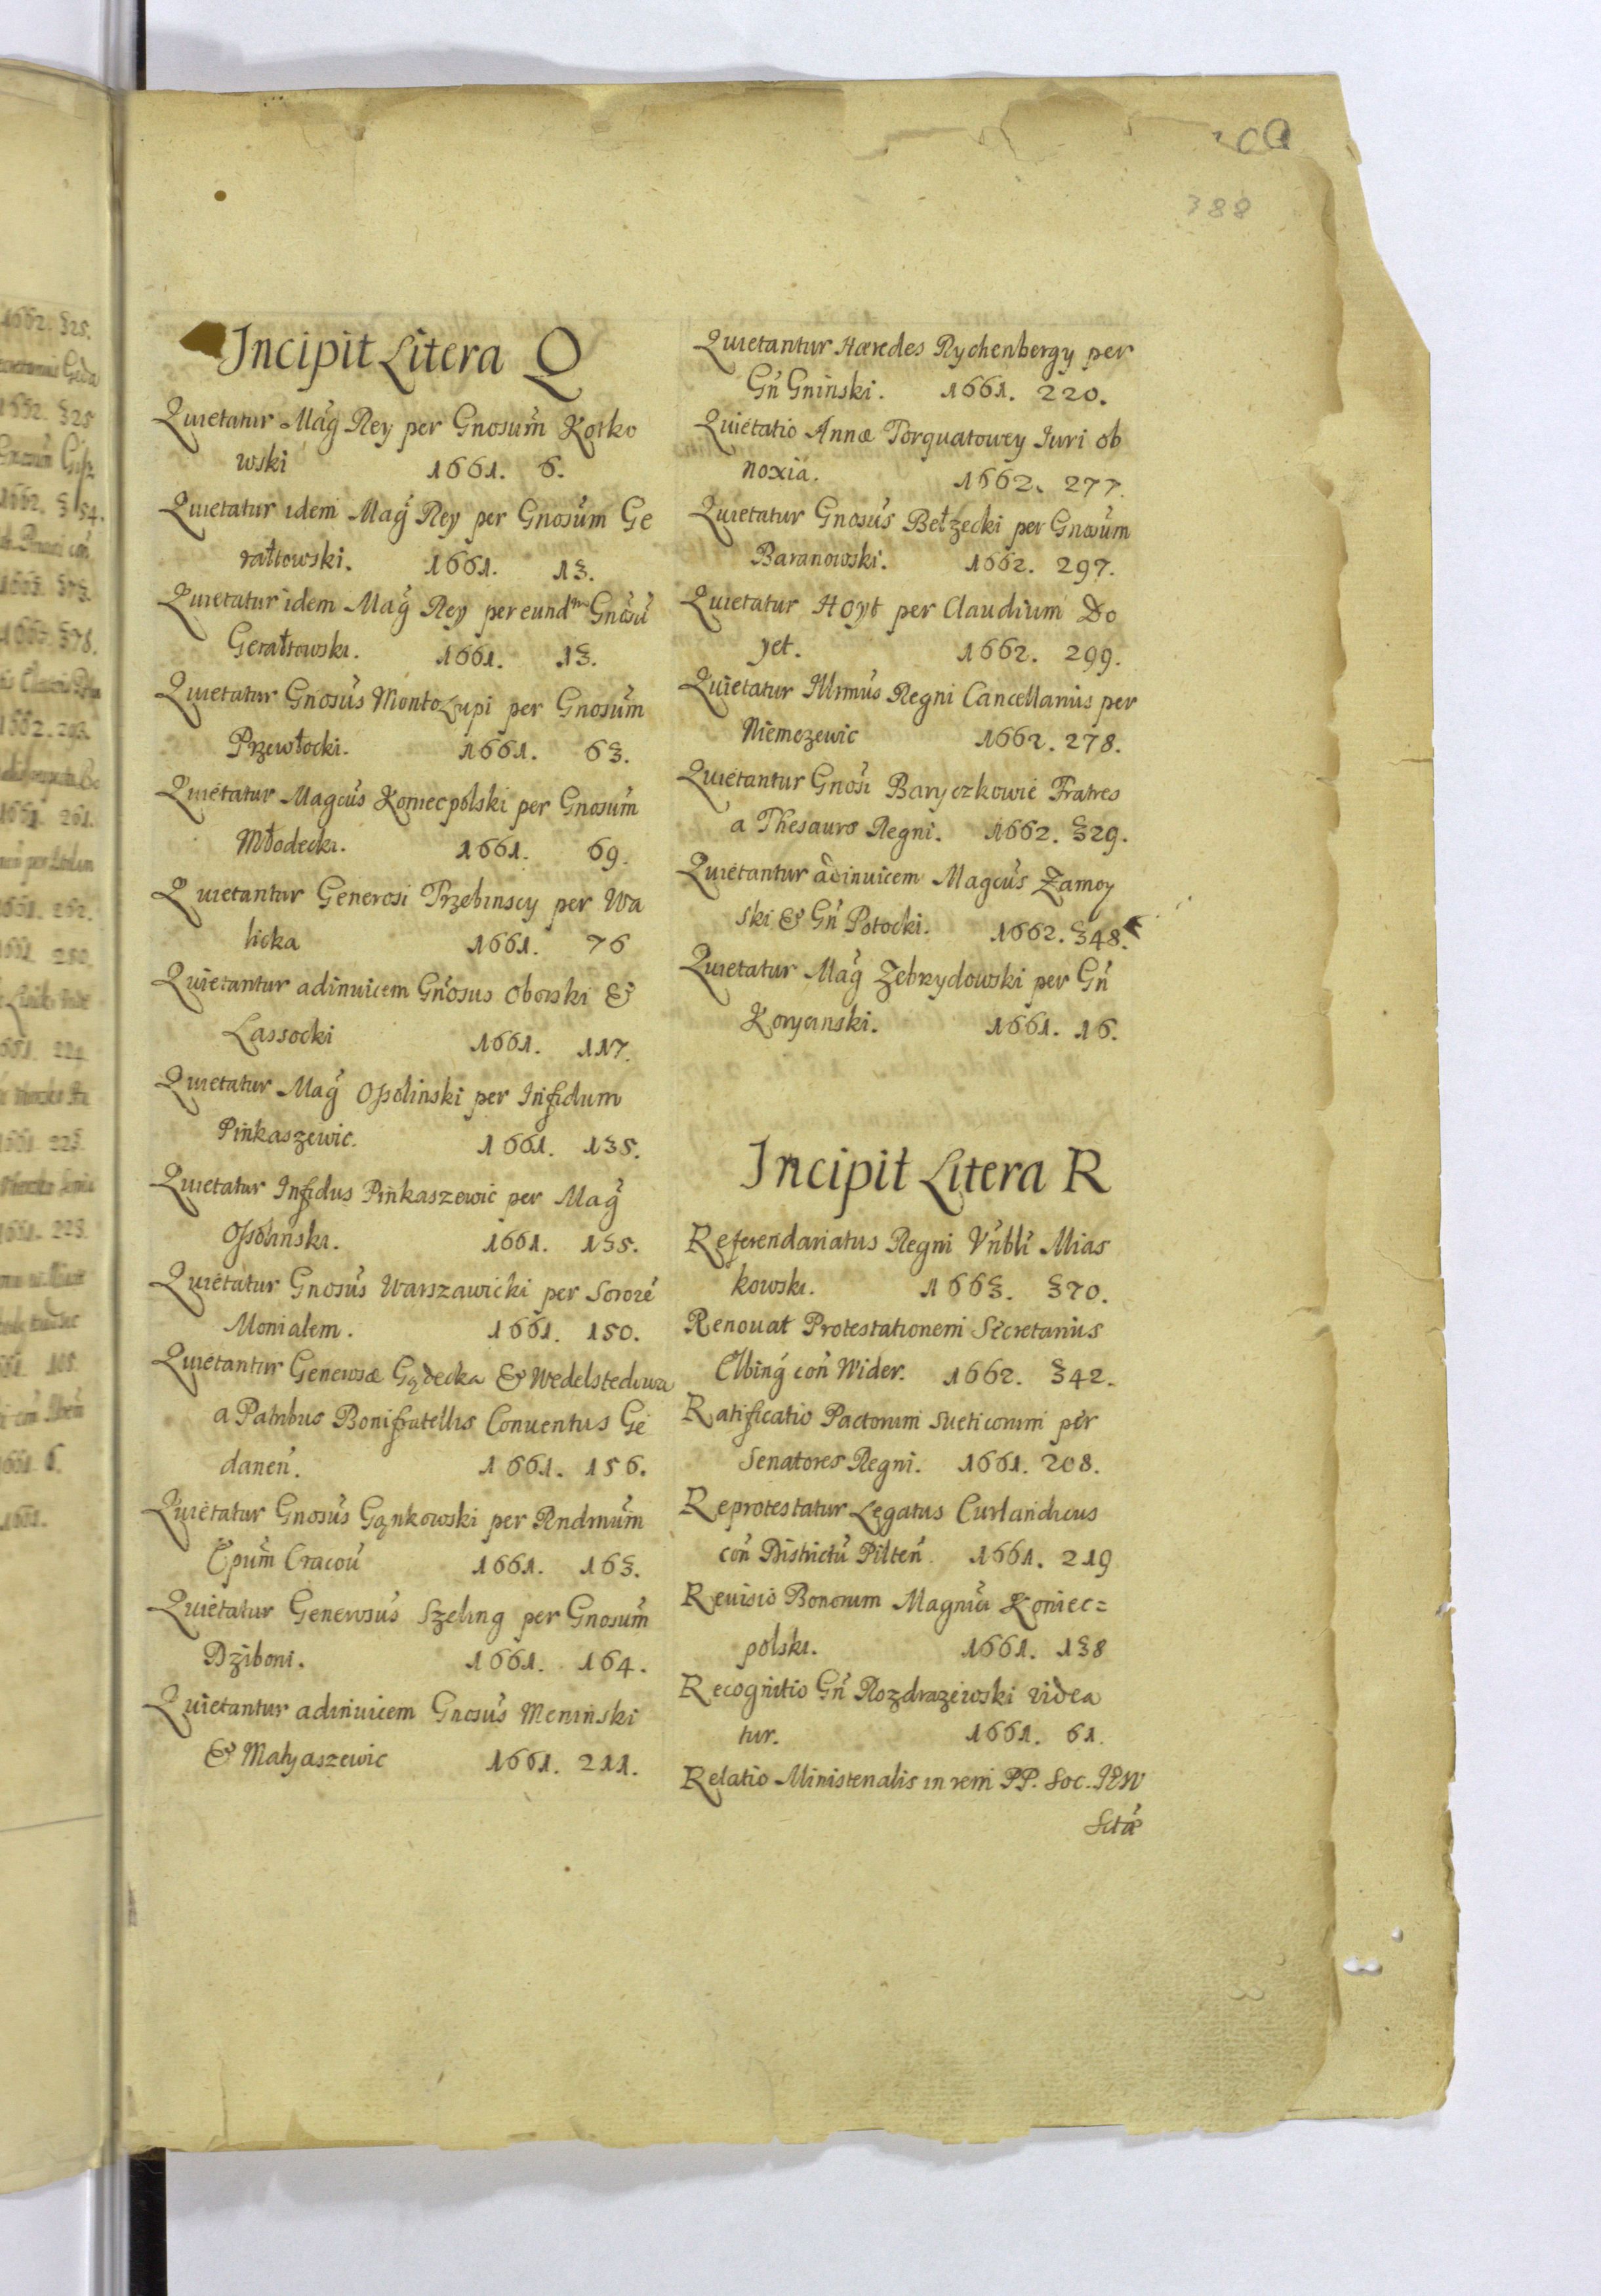 388
Incipit Litera Q
Quietatur Mag̃ Rey per Gnosum̃ Kotko
wski 1661. 6.
Quietatur idem Mag̃ Rey per Gnosũm Ge
rałtowski. 1661. 13.
Quietatur idem Mag̃ Rey per eundm Gnosũ
Gerałtowski. 1661. 13.
Quietatur Gnosũs MontoLupi per Gnosũm
Przewłocki. 1661. 63.
Quietatur Magcũs Koniecpolski per Gnosũm
Młodecki. 1661. 69.
Quietantur Generosi Trzebinscy per Wa
licka 1661. 76
Quietantur adinuicem Gñosus Oborski &
Lassocki 1661. 117.
Quietatur Mag̃ Ossolinski per Infidum
Pinkaszewic. 1661. 135.
Quietatur Infidus Pinkaszewic per Mag̃
Ossolinski. 1661. 135.
Quietatur Gnosũs Warszawicki per Sororẽ
Monialem. 1661. 150.
Quietantur Generosæ Gądecka & Wedelstedowa
a Patribus Bonifratellis Conuentus Ge
daneñ. 1661. 156.
Quietatur Gnosũs Gąnkowski per Rndmũm
Epũm Cracoũ 1661. 163.
Quietatur Generosũs Szeling per Gnosũm
Dziboni. 1661. 164.
Quietantur adinuicem Gnosũs Meninski
& Matyaszewic 1661. 211.
Quietantur Hæredes Rychenbergy per
Gñ Gninski. 1661. 220.
Quietatio Annæ Torquatowey Iuri ob
noxia. 1662. 277.
Quietatur Gnosũs Bełzecki per Gnosũm
Baranowski. 1662. 297.
Quietatur Hoyt per Claudium Do
yet. 1662. 299.
Quietatur Illrmũs Regni Cancellarius per
Niemczewic 1662. 278.
Quietantur Gnosĩ Baryczkowie Fratres
a Thesauro Regni. 1662. 329.
Quietantur adinuicem Magcũs Zamoy
ski & Gñ Potocki. 1662. 348.
Quietatur Mag̃ Zebrzydowski per Gñ
Korycinski. 1661. 16.
Incipit Litera R
Referendariatus Regni Vñbli Mias
kowski. 1663. 370.
Renouat Protestationem Secretarius
Elbing̃ coñ Wider. 1662. 342.
Ratificatio Pactorum Sueticorum per
Senatores Regni. 1661. 208.
Reprotestatur Legatus Curlandicus
coñ Districtũ Pilteñ 1661. 219
Reuisio Bonorum Koniec=
polski. 1661. 138
Recognitio Gñ Rozdrazewski videa
tur. 1661. 61.
Relatio Ministerialis in rem PP. Soc. IESV